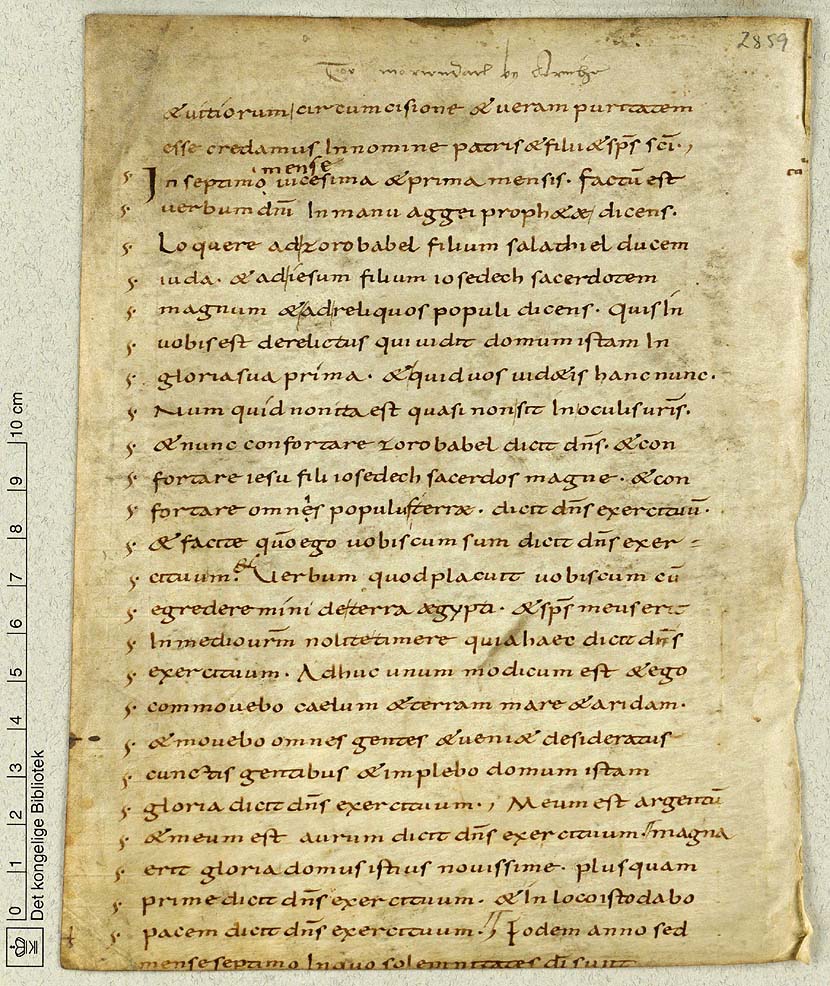 2859
&uitiorum circumcisione &ueram puritatem
esse credamus Innomine patris&filii&sp̄s sc̄i.,
mense
In septimo uicesima &prima mensis. factū est
uerbum dn̄i Inmanu aggei proph&ae dicens.
Loquere ad zorobabel filium salathiel ducem
iuda. &ad iesum filium iosedech sacerdotem
magnum &ad reliquos populi dicens. Quis In
uobis est derelictus qui uidit domum istam In
gloria sua prima. &quid uos uid&is hanc nunc.
Num quid non ita est quasi non sit In oculis ur̄is.
&nunc confortare zorobabel dicit dn̄s. &con
fortare iesu fili iosedech sacerdos magne. &con
fortare omnes populus terrae. dicit dn̄s exercituū.
&facite qūo ego uobiscum sum dicit dn̄s exer-
cituum. Uerbum quod placuit uobiscum cū
egrederemini de terra aegypti. &sp̄s meus erit
In medio ur̄m nolite timere quia haec dicit dn̄s
exercituum. Adhuc unum modicum est &ego
commouebo caelum &terram mare &aridam.
&mouebo omnes gentes &ueni& desideratus
cunctis gentibus &implebo domum istam
gloria dicit dn̄s exercituum., Meum est argentū
&meum est aurum dicit dn̄s exercituum. magna
erit gloria domus istius nouissime. plus quam
prime dicit dn̄s exercituum. &In loco isto dabo
pacem dicit dn̄s exercituum. Eodem anno sed
mense septimo Inquo solemnitates
10 cm
9
8
7
6
5
4
3
2
1
0
Det kongelige Bibliotek